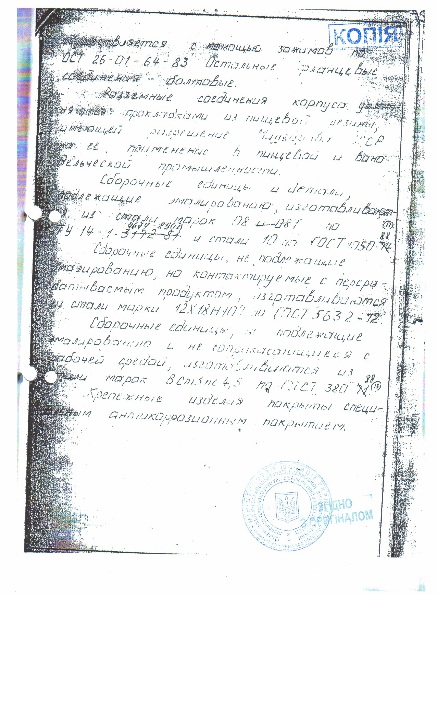 КОПІЯ
с помощью зажимов по
ОСТ 26-01-64-83 Остальные фланцевые
соединения - болтовые.
Разъемные соединения корпуса
прокладками из пищевой резины,
имеющей разрешение
на ее применение в пищевой и вино-
дельческой промышленности.
Сборочные единицы и детали,
подлежащие эмалированию, изготавливают-
из стали марок 08 по
ТУ 14-1- и стали 10 по ГОСТ 1050-
Сборочные единицы, не подлежащие
эмалированию, но контактируемые с перера-
батываемым продуктом, изготавливаются
из стали марки 12Х18Н10Т по ГОСТ 5632-72.
Сборочные единицы, подлежащие
эмалированию и не соприкасающиеся с
рабочей средой, изготавливаются из
стали марок ВСт3пс 4,5 по ГОСТ 380
Крепежные изделия покрыты специ-
альным антикоррозионным покрытием.
ЗГІДНО
З ОРИГІНАЛОМ